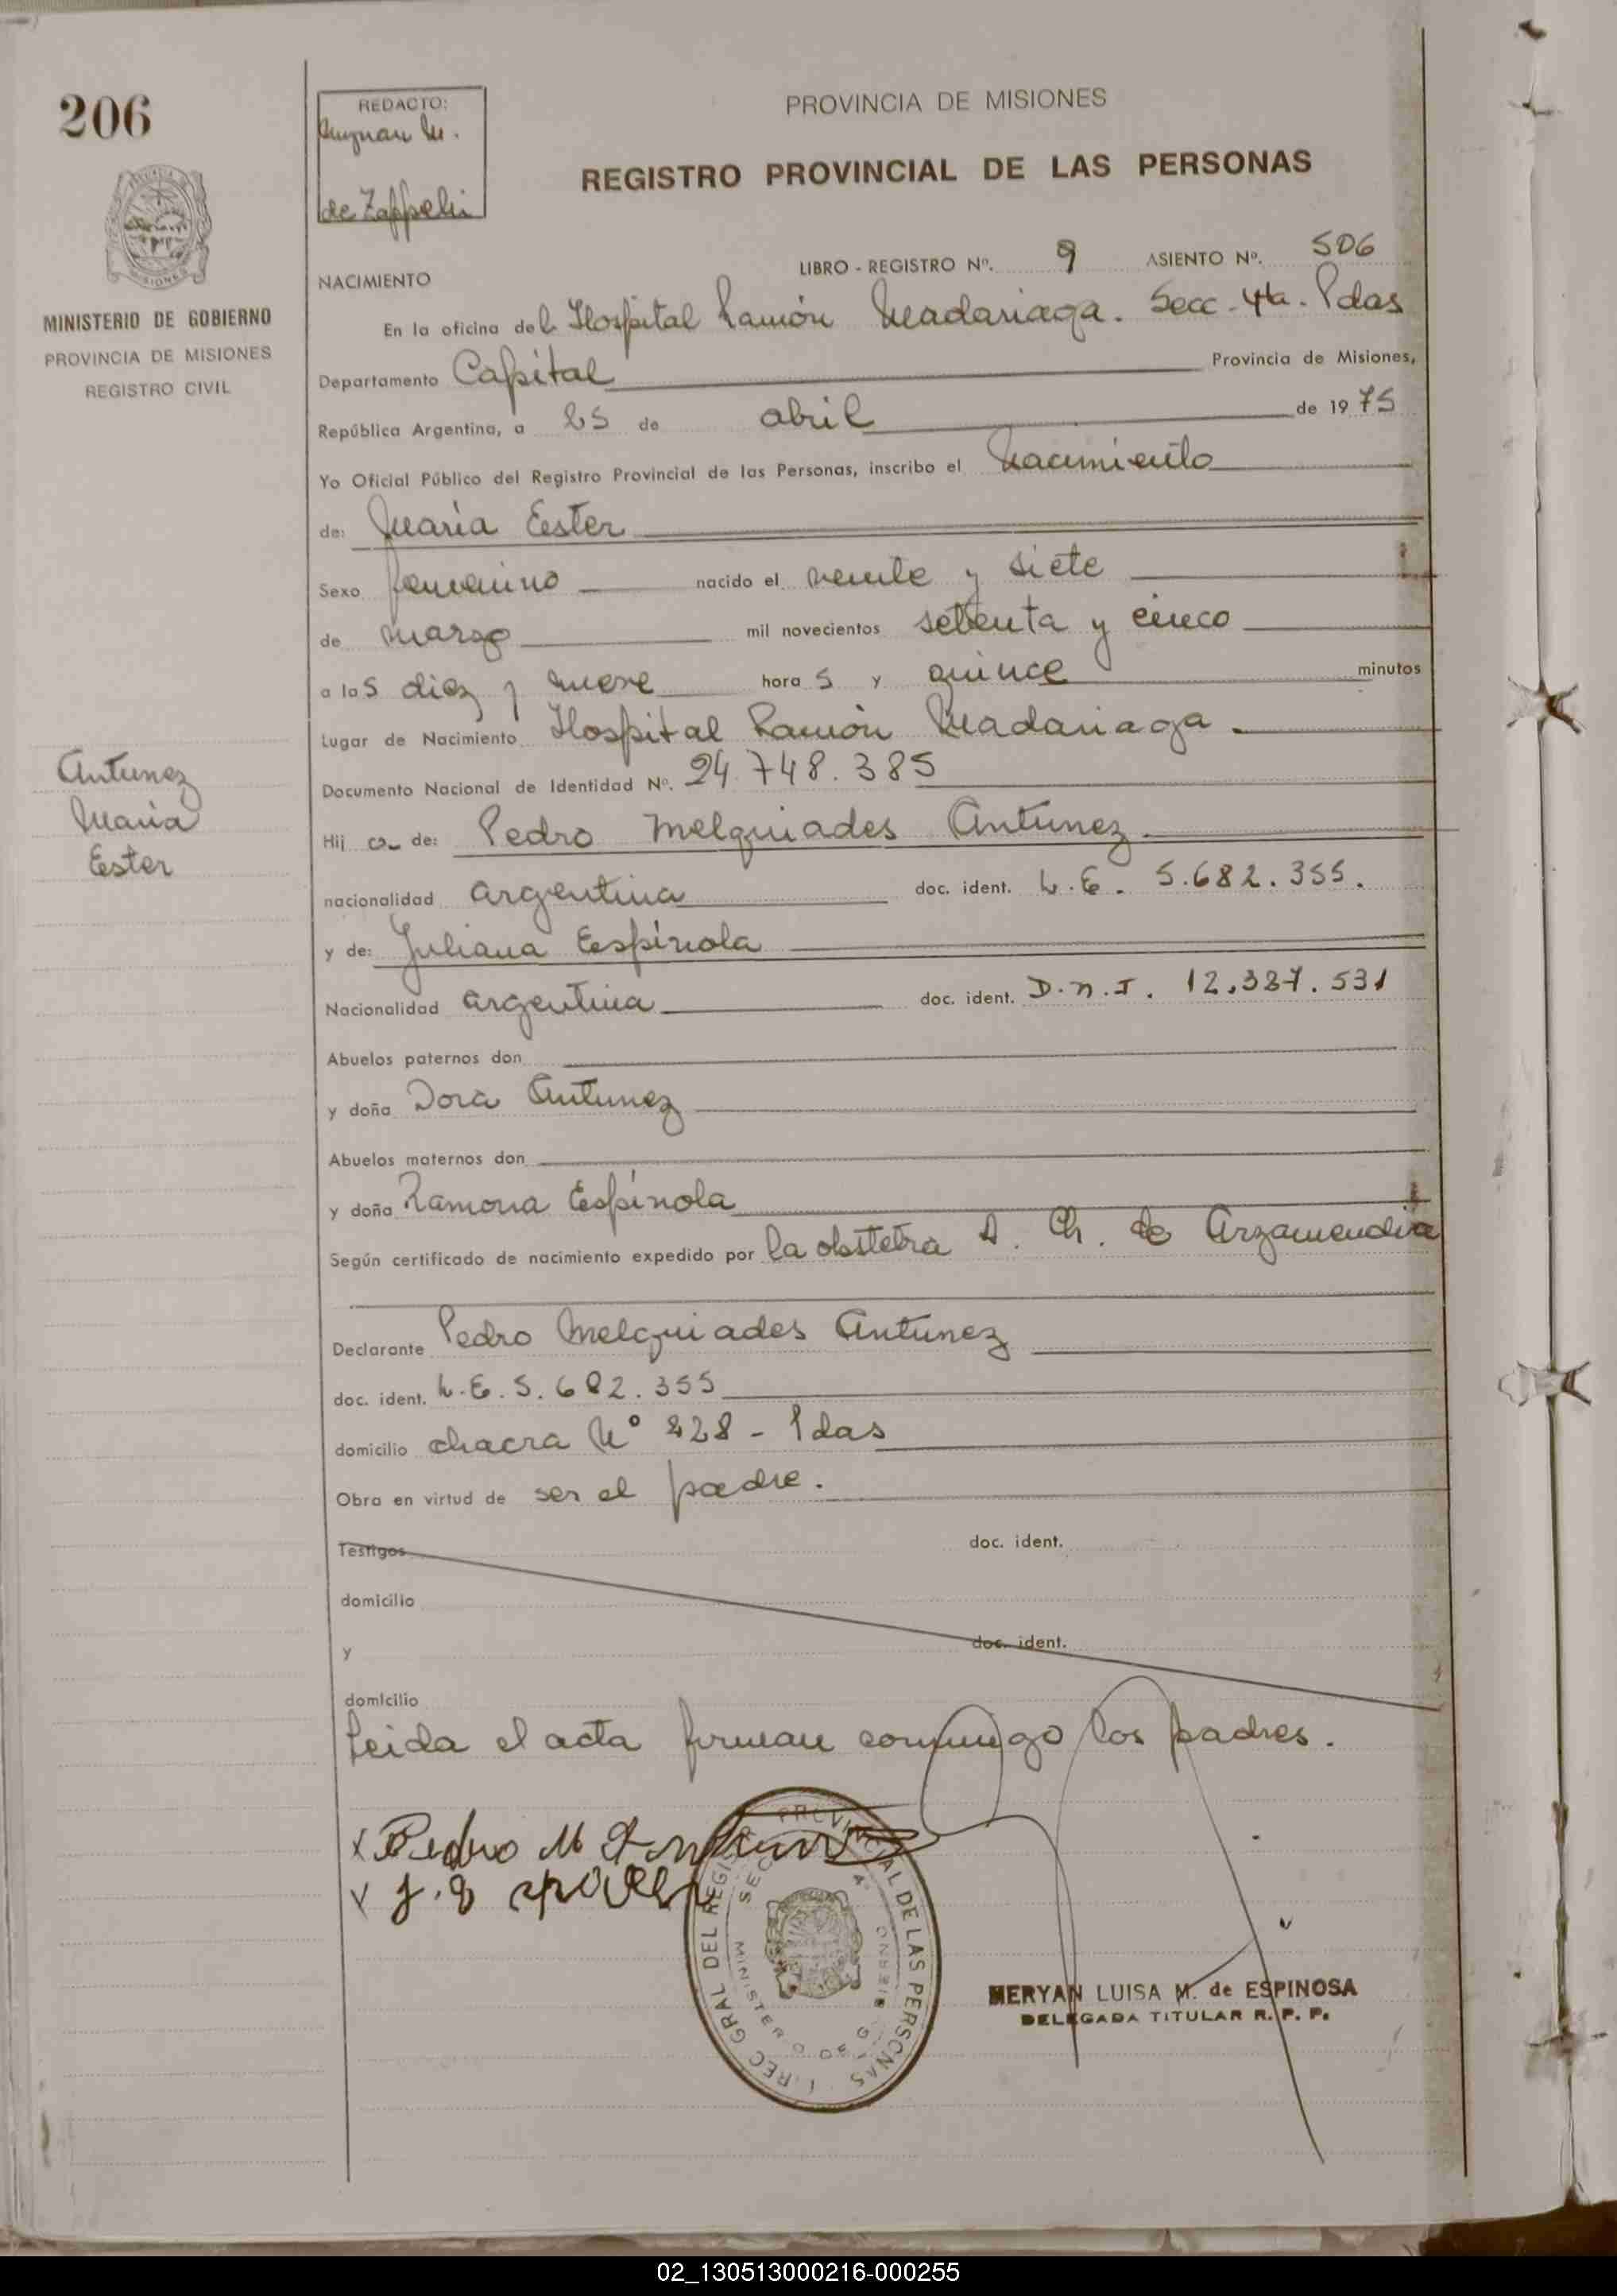 206
REDACTO:
de Zappelli
MINISTERIO DE GOBIERNO
PROVINCIA DE MISIONES
REGISTRO CIVIL
PROVINCIA DE MISIONES
REGISTRO PROVINCIAL DE LAS PERSONAS
LIBRO - REGISTRO Nº. 9 ASIENTO Nº. 506
NACIMIENTO
En la oficina del Hospital Ramón Madariaga. Secc. 4ta. Pdas
Departamento Capital Provincia de Misiones,
República Argentina, a 25 de abril de 1975
Yo Oficial Público del Registro Provincial de las Personas, inscribo el Nacimiento
de: María Ester
Sexo femenino nacido el veinte y siete
de marzo mil novecientos setenta y cinco
a las diez y nueve horas y quince minutos
Lugar de Nacimiento Hospital Ramón Madariaga.
Documento Nacional de Identidad Nº. 24.748.385
Antunez
María
Ester
Hij a de: Pedro Melquiades Antunez
nacionalidad argentina doc. ident. L.E. 5.682.355.
y de: Juliana Espínola
Nacionalidad argentina doc. ident. D.N.I. 12.387.531
Abuelos paternos don
y doña Dora Antunez
Abuelos maternos don
y doña Ramona Espínola
Según certificado de nacimiento expedido por la obstetra A. Ch. de Arzamendia
Declarante Pedro Melquiades Antunez
doc. ident. L.E. 5.682.355
domicilio chacra Nº 228 - Pdas
Obra en virtud de ser el padre.
Testigos doc. ident.
domicilio
y doc. ident.
domicilio
Leida el acta firman conmigo los padres.
x Pedro M Antunez
REC. GRAL DEL REGISTRO PROVINCIAL DE LAS PERSONAS
MINISTERIO DE GOBIERNO
MERYAN LUISA M. de ESPINOSA
DELEGADA TITULAR R. P. P.
02_130513000216-000255